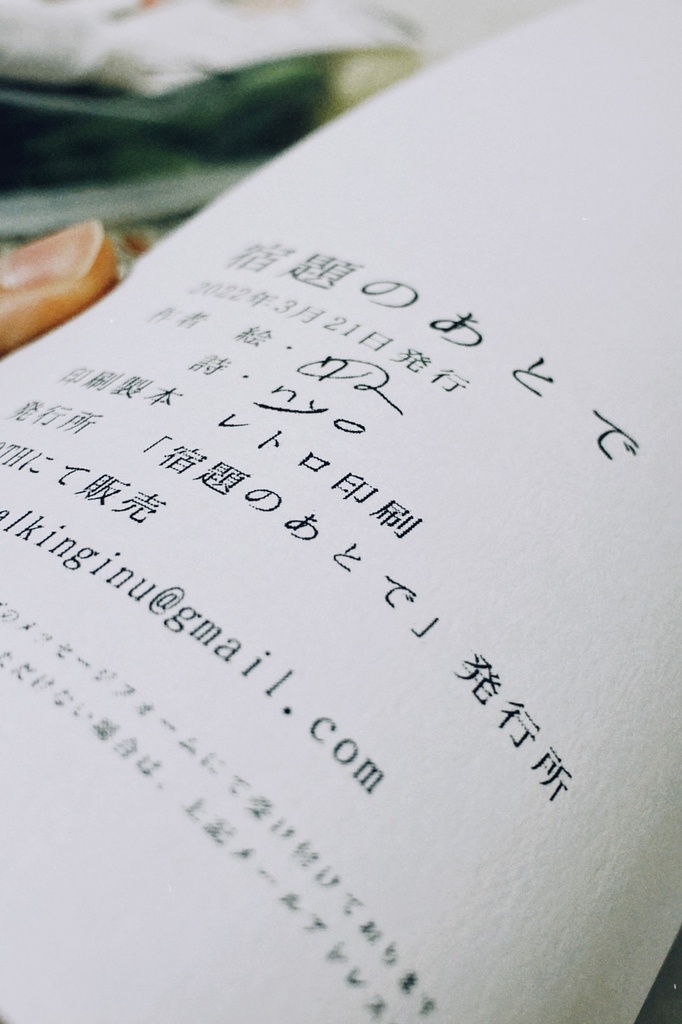 宿題のあとで
2022年3月21日発行
作者 絵・
詩・nyo
印刷製本 レトロ印刷
発行所 「宿題のあとで」発行所
THにて販売
alkinginu@gmail.com
のメッセージフォームにて受け付けております
ただけない場合は、上記メールアドレス